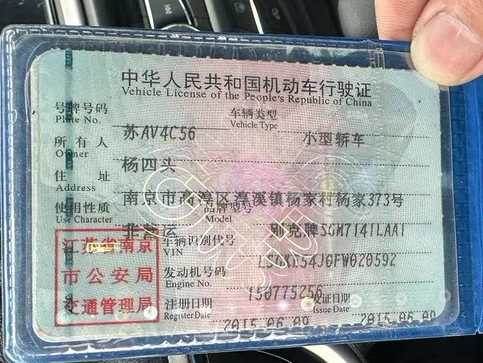 中华人民共和国机动车行驶证
Vehicle License of the People's Republic of China
号牌号码 苏AV4C56 车辆类型 小型轿车
Plate No. Vehicle Type
所有人 杨四头
Owner
住址 南京市高淳区淳溪镇杨家村杨家373号
Address
使用性质 非营运 品牌型号 别克牌SGM7141LAA1
Use Character
江苏省南京
市公安局
交通管理局
车辆识别代号
VIN
发动机号码 150775256
Engine No.
注册日期 2015.06.09 发证日期 2015.06.09
Register Date Issue Date